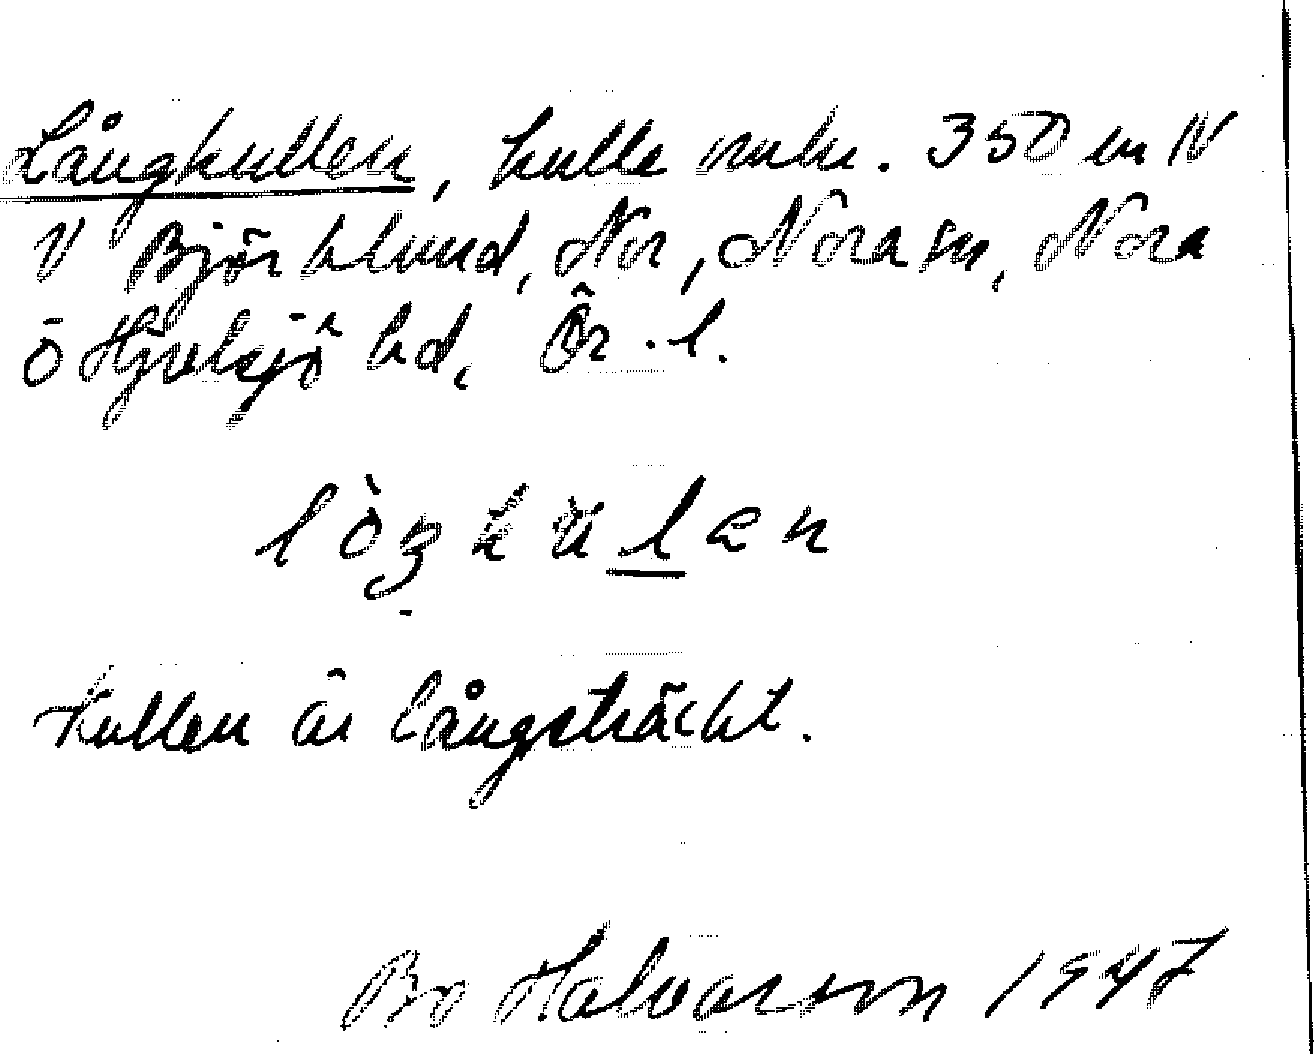 Långkullen, kulle 350 m N
V Björklund, Nor, Nora sn, Nora
o Hjulsjö hd, Ör. l.
Kullen är långsträckt.
Bo Halvarson 1947